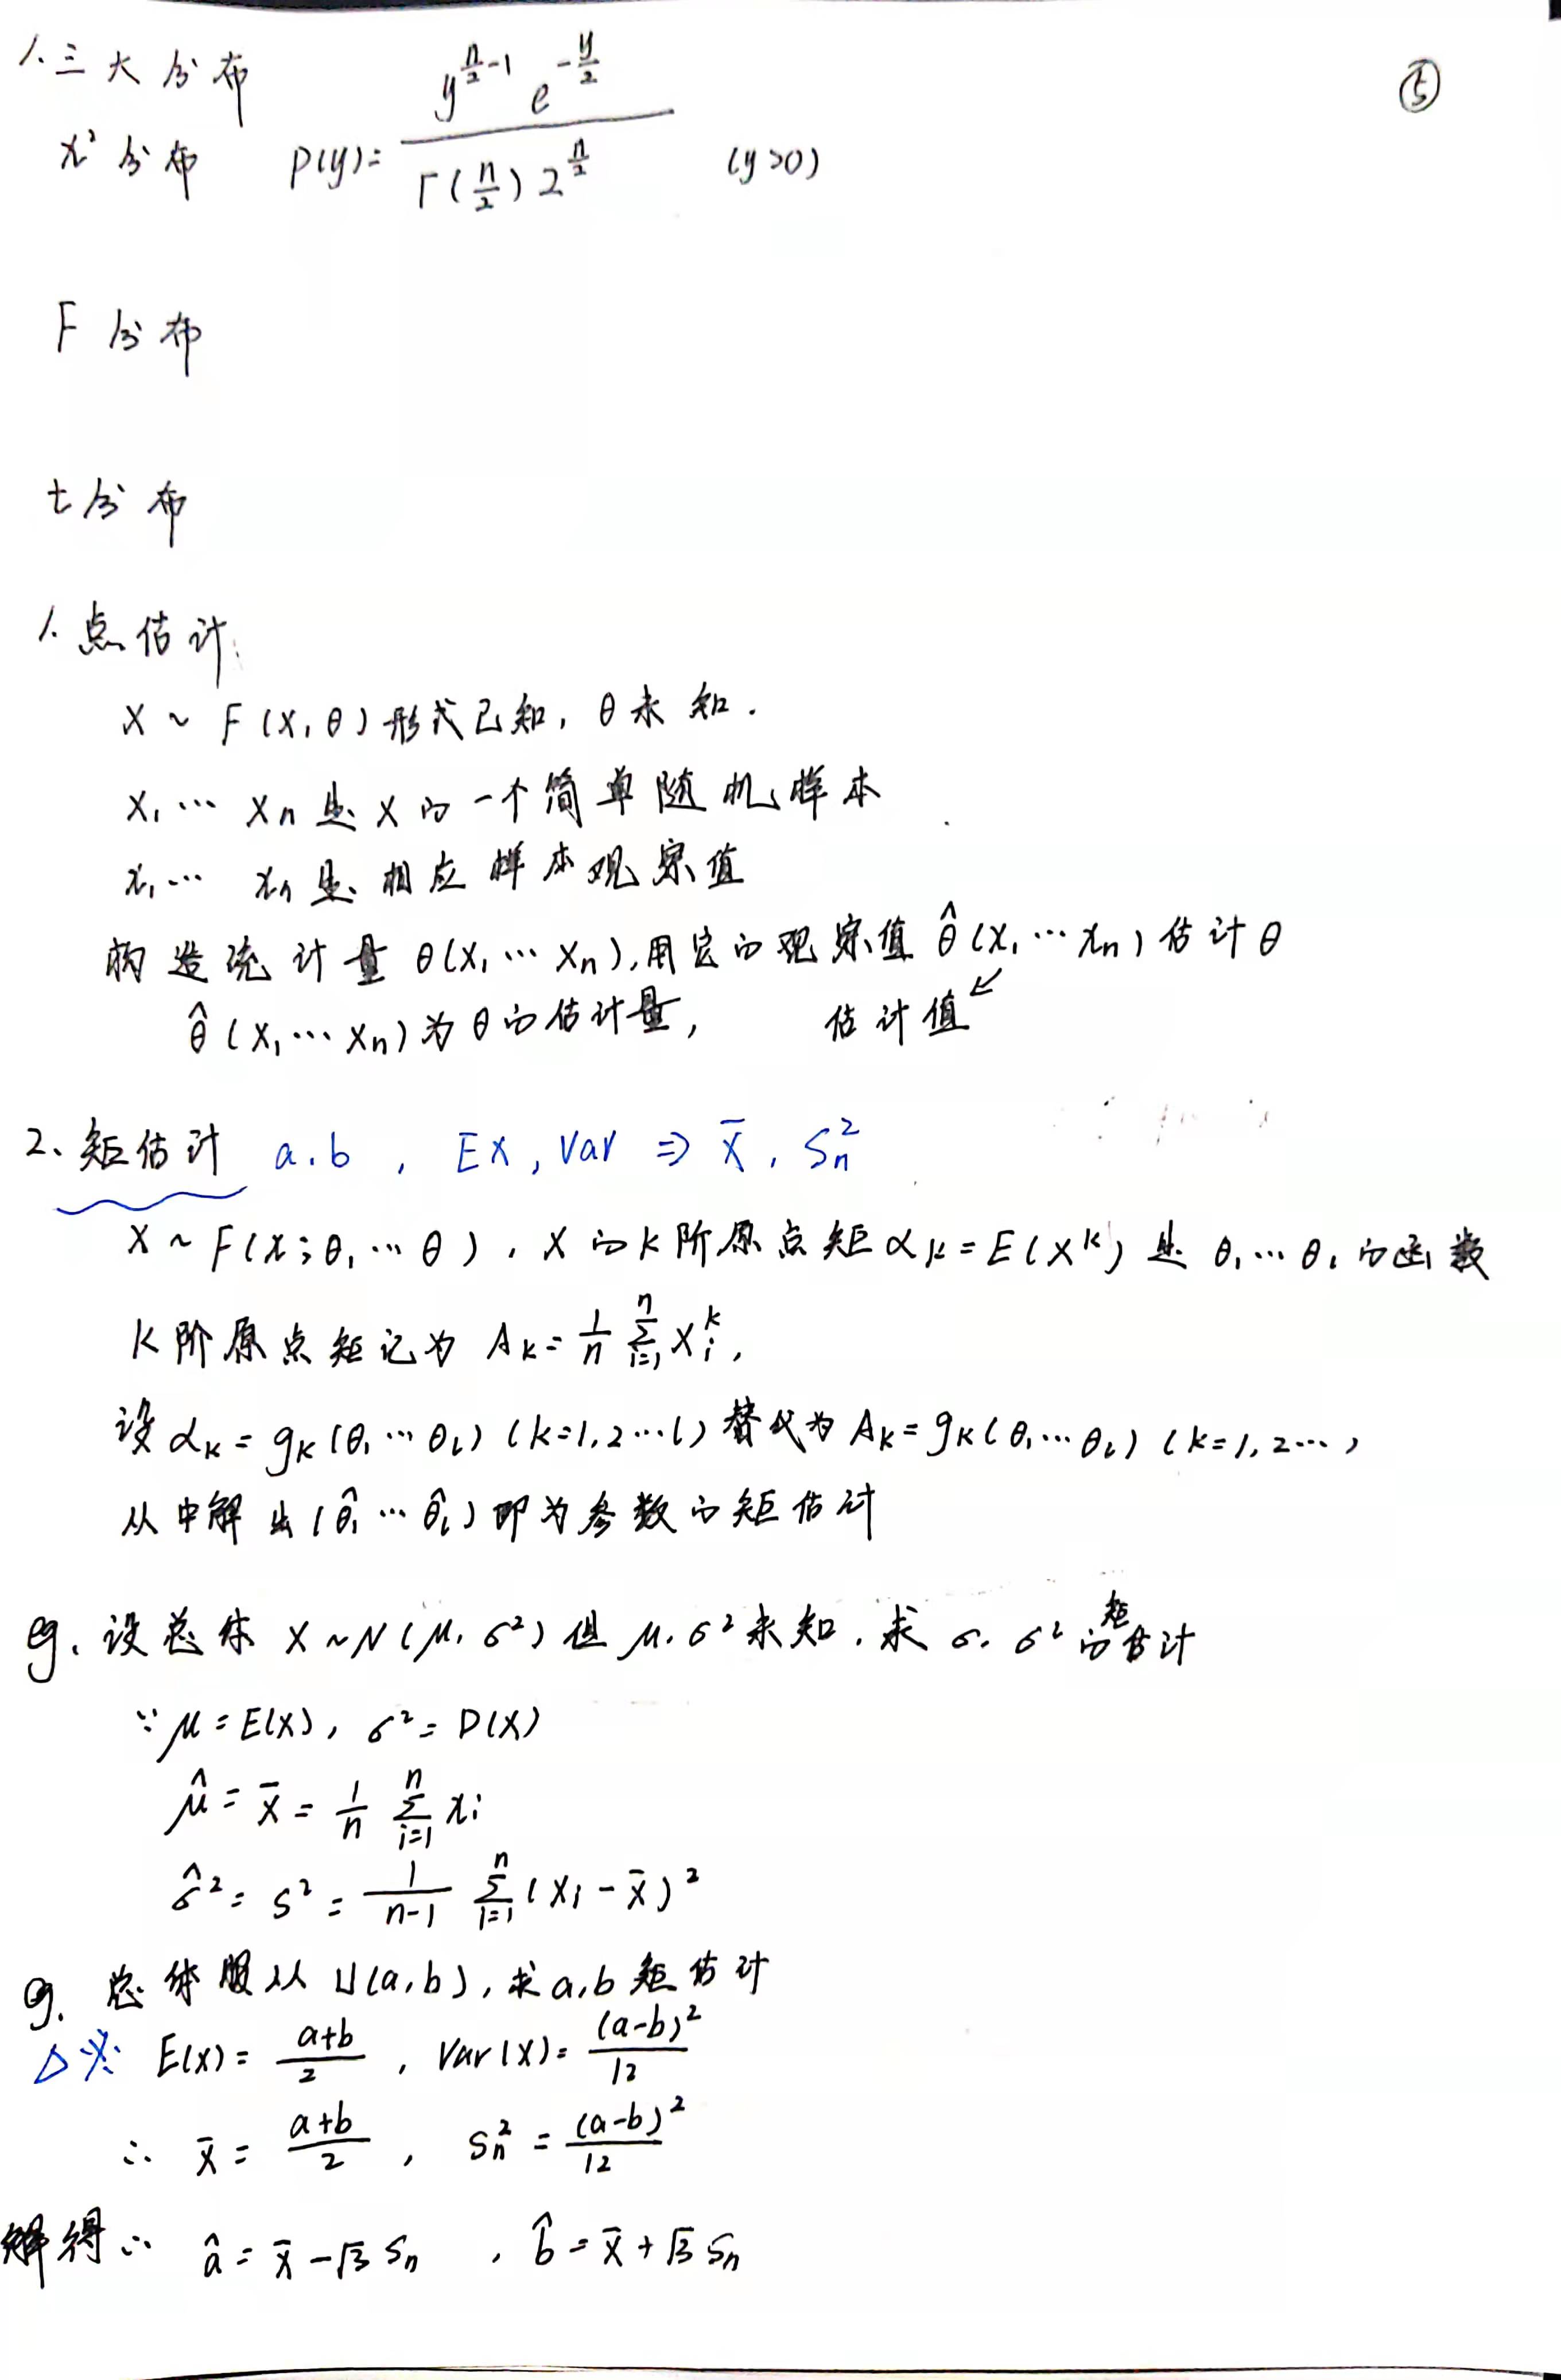 1. 三大分布
⑤
χ² 分布 P(y) = \frac{y^{\frac{n}{2}-1} e^{-\frac{y}{2}}}{Γ(\frac{n}{2}) 2^{\frac{n}{2}}} (y>0)
F 分布
t 分布
1. 点估计:
X ~ F(X, θ) 形式已知, θ 未知.
X₁ ⋯ Xn 是 X 的一个简单随机样本
x₁ ⋯ xn 是相应样本观察值
构造统计量 θ(X₁ ⋯ Xn), 用它的观察值 θ̂(x₁ ⋯ xn) 估计 θ
θ̂(X₁ ⋯ Xn) 为 θ 的估计量, 估计值↙
2、矩估计 a.b , EX, Var ⇒ X̄, Sn²
X ~ F(x; θ₁ ⋯ θ), X 的 K 阶原点矩 αK = E(X^K) 是 θ₁ ⋯ θι 的函数
K 阶原点矩记为 AK = \frac{1}{n} \sum_{i=1}^{n} Xi^k,
设 αK = gK(θ₁ ⋯ θι) (k=1,2⋯ι) 替代为 AK = gK(θ₁ ⋯ θι) (k=1,2⋯)
从中解出 (θ̂₁ ⋯ θ̂ι) 即为参数的矩估计
eg. 设总体 X ~ N(μ, σ²) 但 μ, σ² 未知, 求 σ, σ² 的矩估计
∵ μ = E(X), σ² = D(X)
μ̂ = X̄ = \frac{1}{n} \sum_{i=1}^{n} xi
σ̂² = S² = \frac{1}{n-1} \sum_{i=1}^{n} (Xi - X̄)²
eg. 总体服从 U(a,b), 求 a,b 矩估计
△※ E(X) = \frac{a+b}{2}, Var(X) = \frac{(a-b)²}{12}
∴ X̄ = \frac{a+b}{2}, Sn² = \frac{(a-b)²}{12}
解得∴ â = X̄ - √3 Sn , b̂ = X̄ + √3 Sn